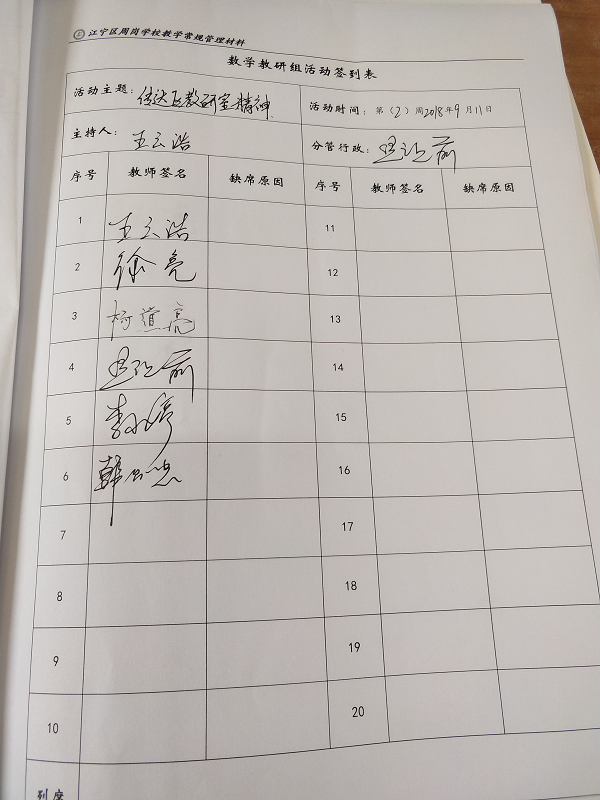 江宁区周岗学校教学常规管理材料
数学教研组活动签到表
活动主题：传达区教研室精神 活动时间：第（2）周2018年9月11日
主持人：王云浩 分管行政：
序号 教师签名 缺席原因 序号 教师签名 缺席原因
1 王云浩 11
2 徐亮 12
3 柯道亮 13
4 14
5 李小婷 15
6 韩 16
7 17
8 18
9 19
10 20
列席